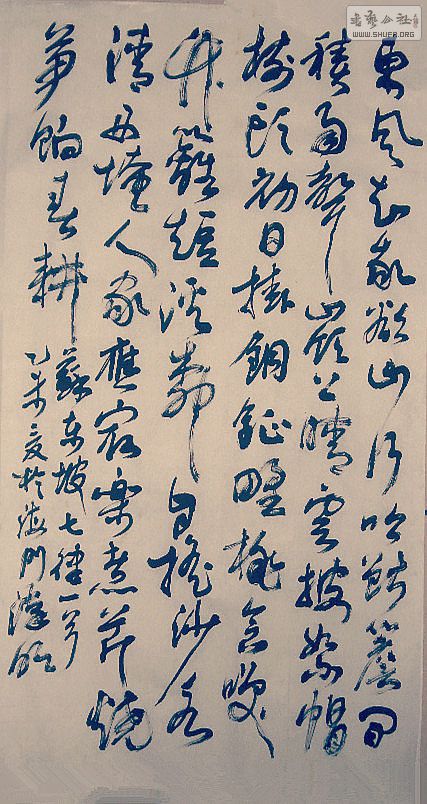 书艺公社
WWW.SHUFA.ORG
東風知我欲山行吹斷簷間
積雨聲嶺上晴雲披絮帽
樹頭初日掛銅鉦野桃含笑
竹籬短溪柳自搖沙水
清西崦人家應最樂煮芹燒
筍餉春耕 蘇東坡七律一首
乙未夏於海門